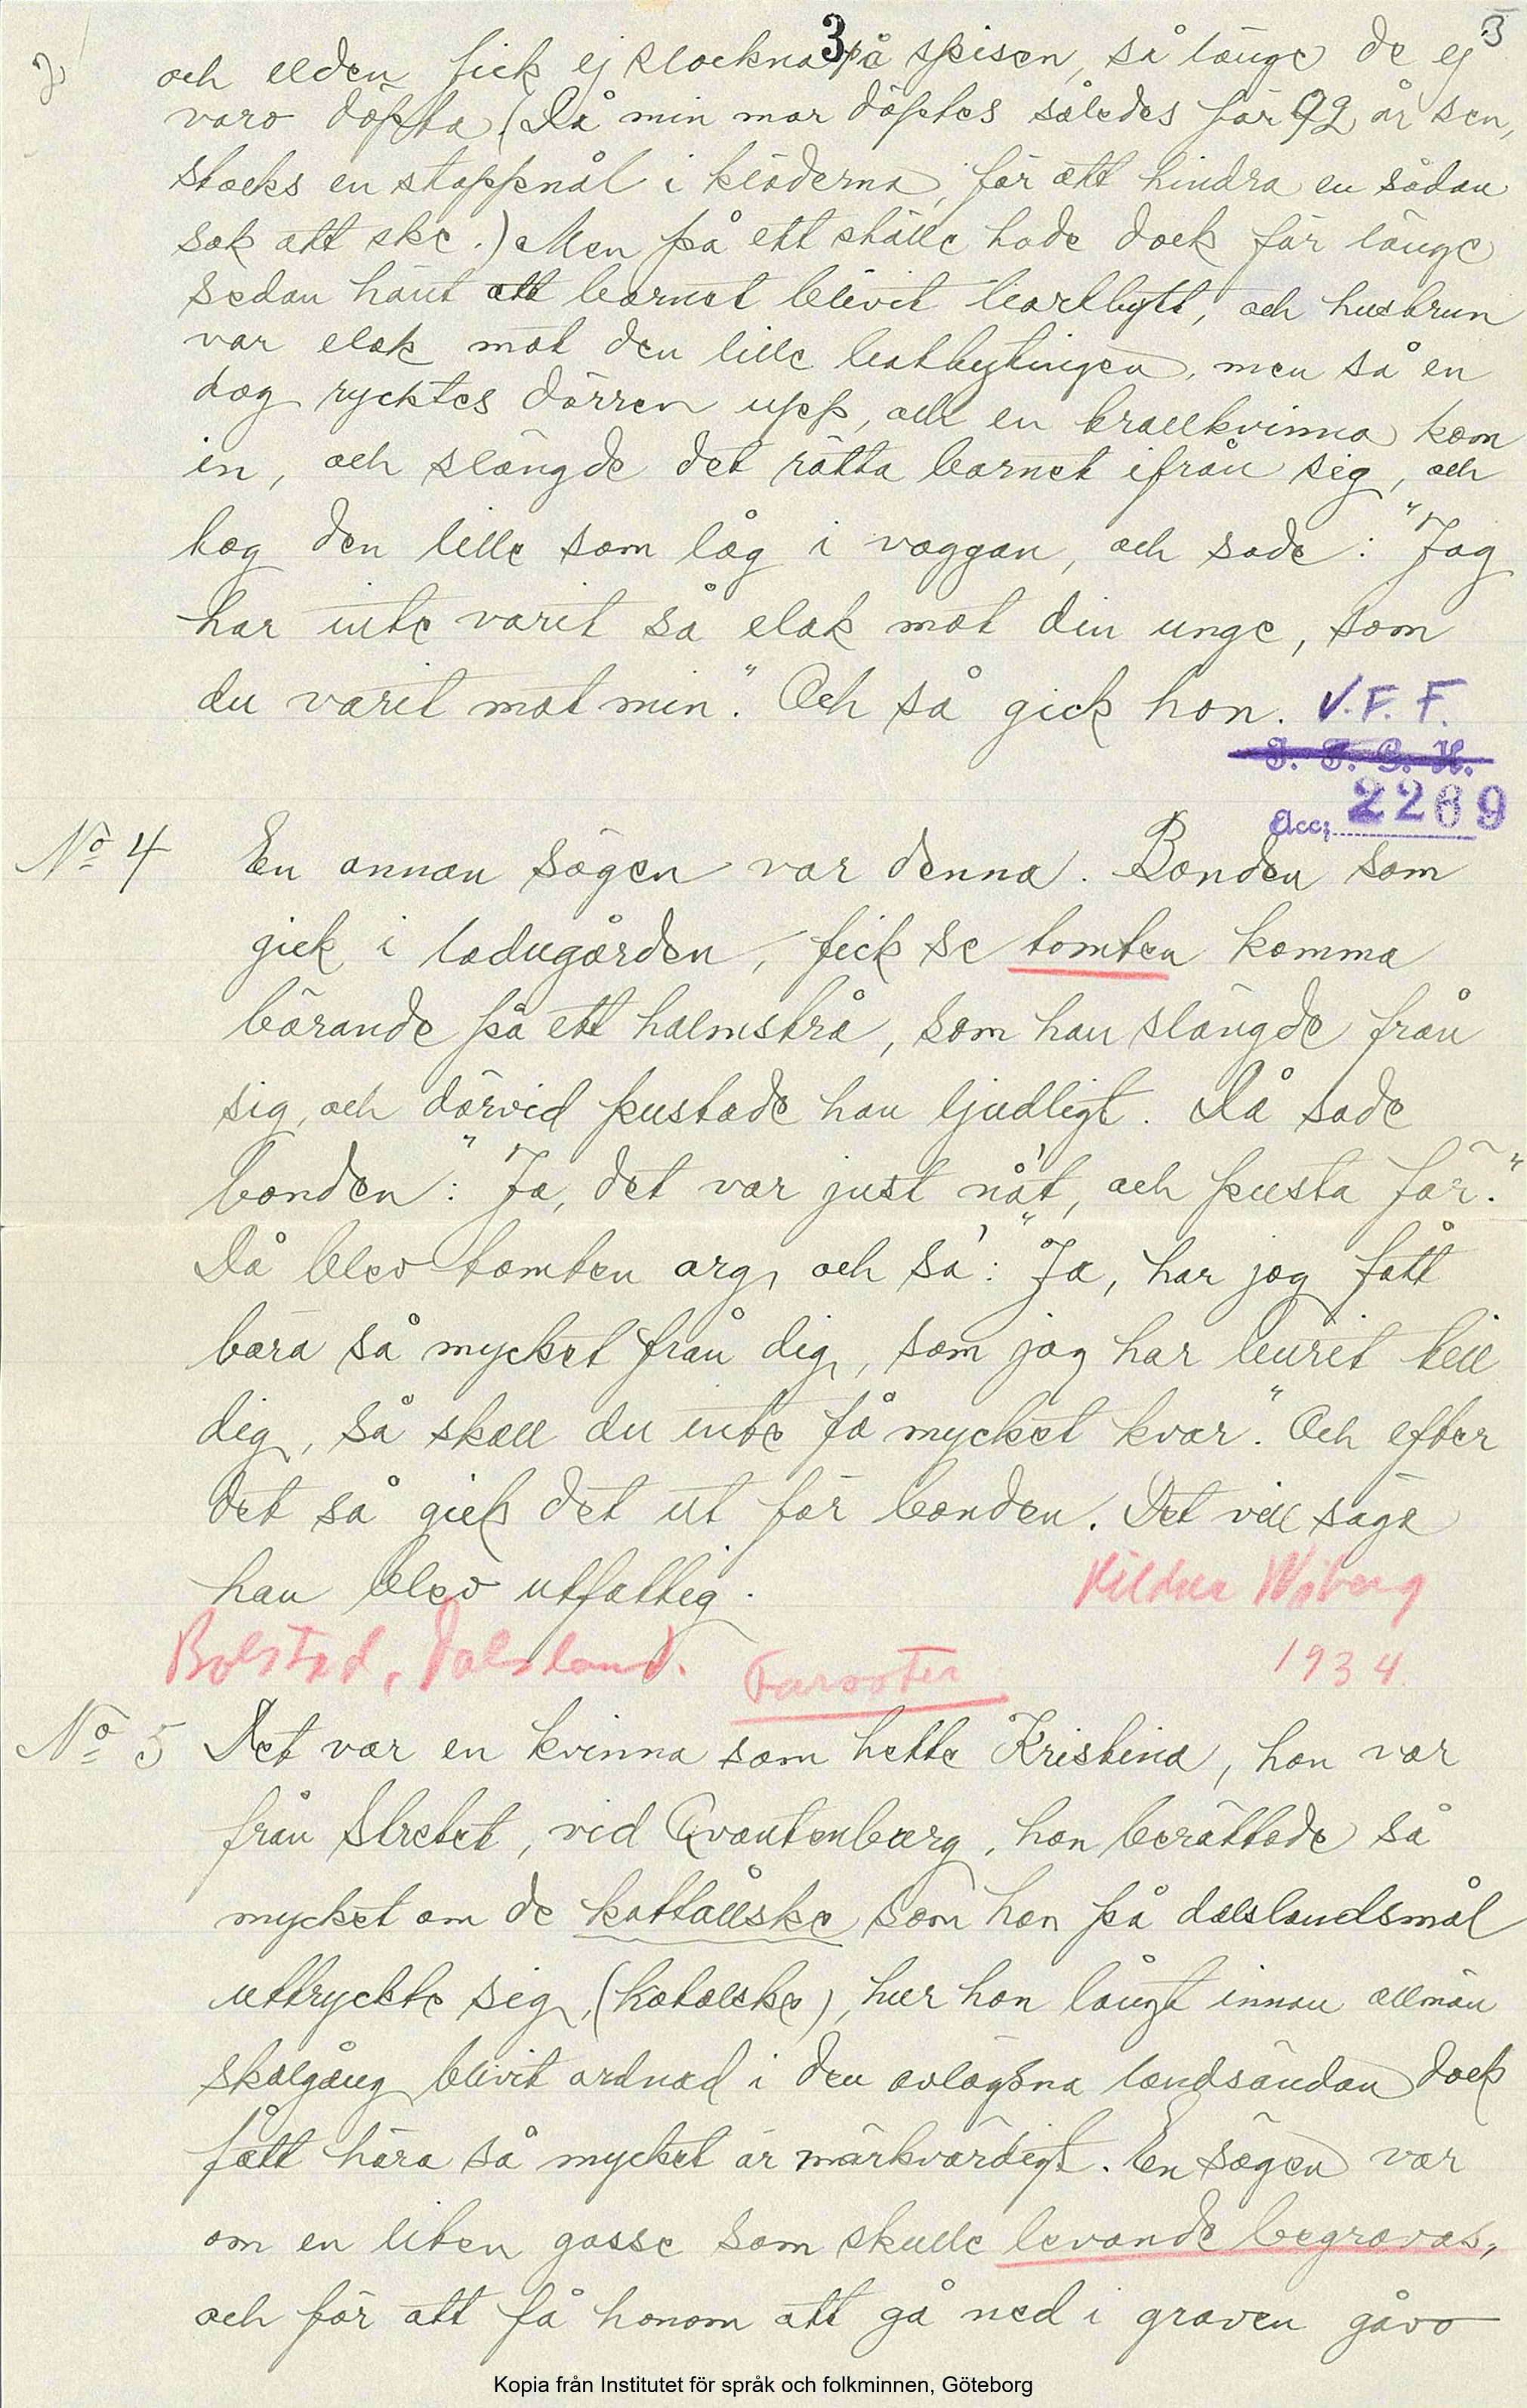 3
3
och elden fick ej slockna på spisen, så länge de ej
voro döpta. (Då min mor döptes således för 92 år sen,
stacks en stoppnål i kläderna, för att hindra en sådan
sak att ske.) Men på ett ställe hade dock för länge
sedan hänt att barnet blivit bortbytt, och husbrun
var elak mot den lille bortbytingen, men så en
dag rycktes dörren upp, och en trollkvinna kom
in, och slängde det rätta barnet ifrån sig, och
tog den lille som låg i vaggan, och sade: "Jag
har inte varit så elak mot din unge, som
du varit mot min." Och så gick hon. V.F.F.
I. F. G. H.
Acc; 2269
No 4 En annan sägen var denna. Bonden som
gick i ladugården, fick se tomten komma
bärande på ett halmstrå, som han slängde från
sig, och därvid pustade han ljudligt. Då sade
bonden: "Ja, det var just nå't, och pusta för."
Då blev tomten arg, och sa': "Ja, har jag fått
bära så mycket från dig, som jag har burit till
dig, så skall du inte få mycket kvar." Och efter
det så gick det ut för bonden. Det vill säga
han blev utfattig.
Hildur Wiberg
Bolstad, Dalsland.
1934.
No 5 Det var en kvinna som hette Kristina, hon var
från Stretet, vid Qvantenburg, hon berättade så
mycket om de kattållske som hon på dalslandsmål
uttryckte sig, (katolske), hur hon långt innan allmän
skolgång blivit ordnad i den avlägsna landsändan dock
fått höra så mycket är märkvärdigt. En sägen var
om en liten gosse som skulle levande begravas,
och för att få honom att gå ned i graven gåvo
Kopia från Institutet för språk och folkminnen, Göteborg